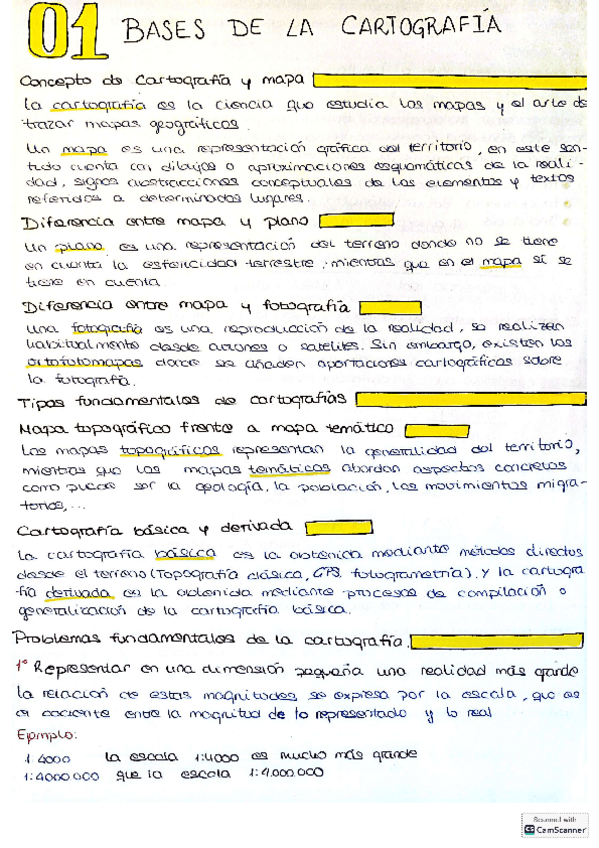 01 BASES DE LA CARTOGRAFÍA
Concepto de Cartografía y mapa
La cartografía es la ciencia que estudia los mapas y el arte de
trazar mapas geográficos.
Un mapa es una representación gráfica del territorio, en este sen-
tido cuenta con dibujos o aproximaciones esquemáticas de la reali-
dad, signos abstracciones conceptuales de los elementos y textos
referidos a determinados lugares.
Diferencia entre mapa y plano
Un plano es una representación del terreno donde no se tiene
en cuenta la esfericidad terrestre, mientras que en el mapa sí se
tiene en cuenta.
Diferencia entre mapa y fotografía
Una fotografía es una reproducción de la realidad, se realizan
habitualmente desde aviones o satélites. Sin embargo, existen los
ortofotomapas donde se añaden aportaciones cartográficas sobre
la fotografía.
Tipos fundamentales de cartografías
Mapa topográfico frente a mapa temático
Los mapas topográficos representan la generalidad del territorio,
mientras que los mapas temáticos abordan aspectos concretos
como puede ser la geología, la población, los movimientos migra-
torios,...
Cartografía básica y derivada
La cartografía básica es la obtenida mediante métodos directos
desde el terreno (Topografía clásica, GPS, fotogrametría) y la cartogra-
fía derivada es la obtenida mediante procesos de compilación o
generalización de la cartografía básica.
Problemas fundamentales de la cartografía.
1º Representar en una dimensión pequeña una realidad más grande
La relación de estas magnitudes se expresa por la escala, que es
el cociente entre la magnitud de lo representado y lo real
Ejemplo:
1:4000 la escala 1:4000 es mucho más grande
1:4000 000 que la escala 1:4.000.000
Scanned with
CS CamScanner